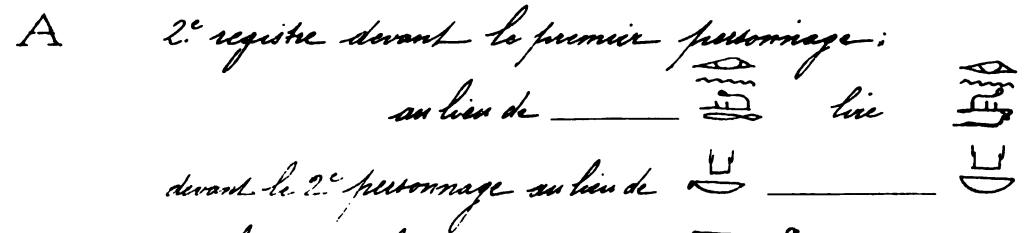 A 2.e registre devant le premier personnage :
au lieu de lire
devant le 2.e personnage au lieu de